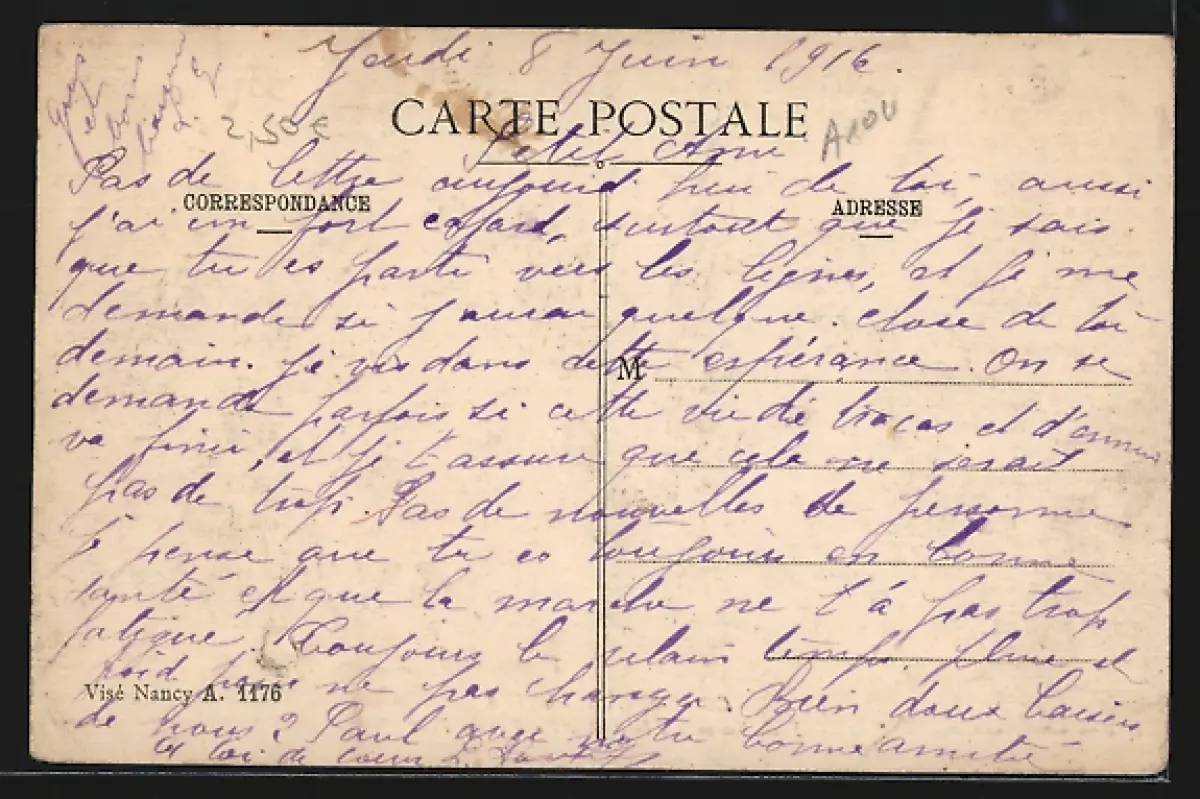 Jeudi 8 Juin 1916.
Gros et bons
2,50€
CARTE POSTALE
A100
Petit Ami
Pas de lettre aujourd'hui de toi, aussi
CORRESPONDANCE
ADRESSE
j'ai un fort cafard, surtout que je sais
que tu es parti vers les lignes, et je me
demande si j'aurai quelque chose de toi
demain. Je vis dans cette espérance. On se
M
demande parfois si cette vie de tracas et d'ennui
va finir, et je t'assure que cela ne serait
pas de trop. Pas de nouvelles de personne
je pense que tu es toujours en bonne
santé et que la marche ne t'a pas trop
fatigué. Toujours le vilain temps, pluie et
froid pour ne pas changer. Bien doux baisers
Visé Nancy A. 1176
de nous 2 Paul avec notre bonne amitié
et toi de cœur